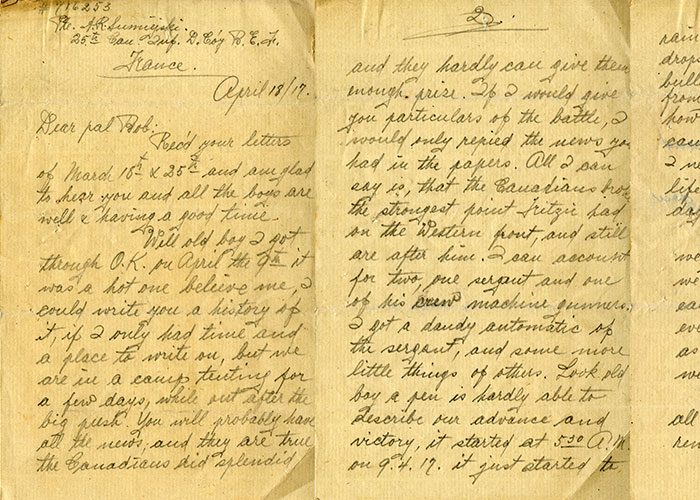 # 716253
Pte. A.R. Sumiejski
25th Can. Inf. D. Co'y B.E.F.
France.
April 18/17.
Dear pal Bob:
Rec'd your letters
of March 16th & 25th and am glad
to hear you and all the boys are
well & having a good time.
Well old boy I got
through O.K. on April the 9th it
was a hot one believe me, I
could write you a history of
it, if I only had time and
a place to write on, but we
are in a camp, tenting for
a few days, while out after the
big push. You will probably have
all the news, and they are true
the Canadians did splendid
2.
and they hardly can give them
enough prize. If I would give
you particulars of the battle, I
would only repied the news you
had in the papers. All I can
say is, that the Canadians
the strongest point Fritzie had
on the Western front, and still
are after him. I can account
for two, one sergant and one
of his crew machine gunners.
I got a dandy automatic of
the sergant, and some more
little things of others. Look old
boy a pen is hardly able to
describe our advance and
victory, it started at 5.30 A.M.
on 9.4.17. it just started to
rain
drop
bull
from
how
can
I n
life
da
we
we
ea
eve
as
we
all
ren